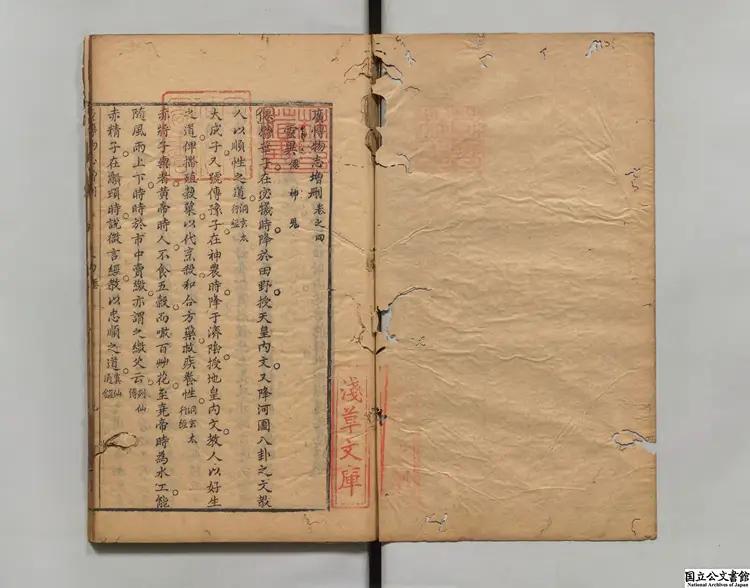 廣博物志增刪卷之四
靈異 僊 神 鬼
鬱華子在宓犧時降於田野授天皇內文又降河圖八卦之文敎
人以順性之道洞玄太行經
大成子又號傳豫子在神農時降于濟陰授地皇內文敎人以好生
之道俾播殖穀粟以代烹殺和合方藥救疾養性洞玄太行經
赤將子輿者黃帝時人不食五穀而噉百艸花至堯帝時為水工能
隨風雨上下時時於市中賣繳亦謂之繳父云列仙傳
赤精子在顓頊時說微言經敎以忠順之道眞仙通鑑
淺草文庫
国立公文書館
National Archives of Japan